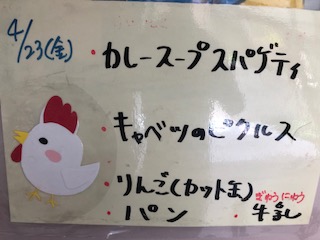 4/23(金)
・カレースープスパゲティ
・キャベツのピクルス
・りんご(カット缶)
ぎゅうにゅう
・パン ・牛乳